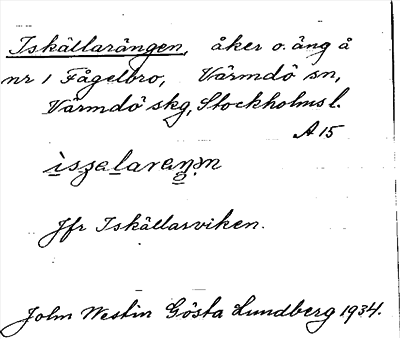 Iskällarängen, åker o. äng å
nr 1 Fågelbro, Värmdö sn,
Värmdö skg, Stockholms l.
A 15
Jfr Iskällarviken.
John Westin Gösta Lundberg 1934.